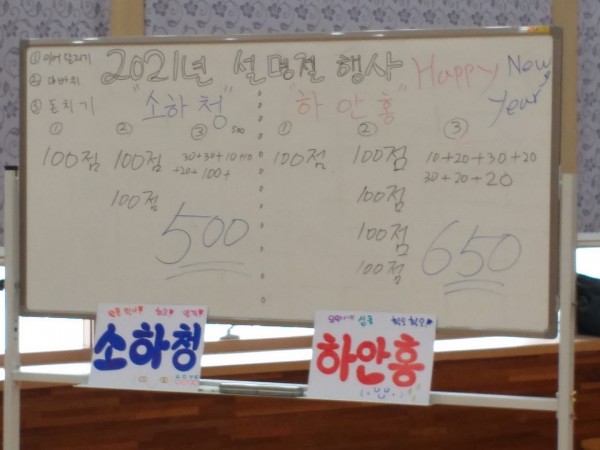 ① 이어달리기
2021년 설명절 행사
Happy New Year
②
③
"소하청"
"하안흥"
① ② ③ 500
① ② ③
100점 100점 30+30+10+10
+20+100+
100점
500
100점 100점 10+20+30+20
30+20+20
100점
100점
100점
650
소하청
하안흥